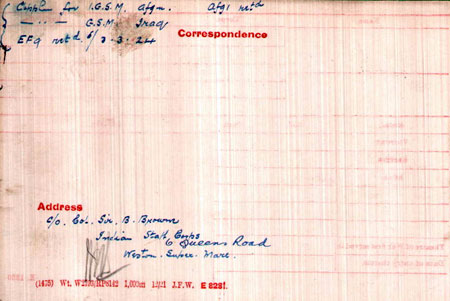 for I.G.S.M. Afgn. Afgn rtd
" " G.S.M. Iraq
EFG rtd 6/ 3.3.24
Correspondence
Address
c/o. Col. Sir. B. Brown
Indian Staff Corps
6 Queens Road
Weston. Super. Mare.
(1475) Wt. 12/21 J.F.W. E 8281.